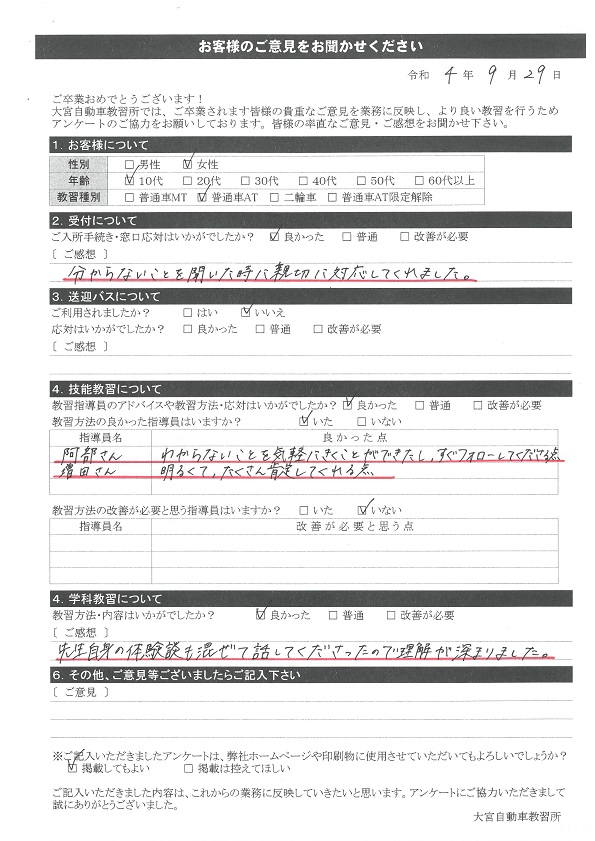 お客様のご意見をお聞かせください
令和 4 年 9 月 29 日
ご卒業おめでとうございます！
大宮自動車教習所では、ご卒業されます皆様の貴重なご意見を業務に反映し、より良い教習を行うため
アンケートのご協力をお願いしております。皆様の率直なご意見・ご感想をお聞かせ下さい。
1. お客様について
性別 □ 男性 ☑ 女性
年齢 ☑ 10代 □ 20代 □ 30代 □ 40代 □ 50代 □ 60代以上
教習種別 □ 普通車MT ☑ 普通車AT □ 二輪車 □ 普通車AT限定解除
2. 受付について
ご入所手続き・窓口応対はいかがでしたか？ ☑ 良かった □ 普通 □ 改善が必要
[ ご感想 ]
分からないことを聞いた時に親切に対応してくれました。
3. 送迎バスについて
ご利用されましたか？ □ はい ☑ いいえ
応対はいかがでしたか？ □ 良かった □ 普通 □ 改善が必要
[ ご感想 ]
4. 技能教習について
教習指導員のアドバイスや教習方法・応対はいかがでしたか？ ☑ 良かった □ 普通 □ 改善が必要
教習方法の良かった指導員はいますか？ ☑ いた □ いない
指導員名 良かった点
阿部さん わからないことを気軽にきくことができたし、すぐフォローしてくださる点
増田さん 明るくて、たくさん肯定してくれる点
教習方法の改善が必要と思う指導員はいますか？ □ いた ☑ いない
指導員名 改善が必要と思う点
4. 学科教習について
教習方法・内容はいかがでしたか？ ☑ 良かった □ 普通 □ 改善が必要
[ ご感想 ]
先生自身の体験談も混ぜて話してくださったので理解が深まりました。
6. その他、ご意見等ございましたらご記入下さい
[ ご意見 ]
※ご記入いただきましたアンケートは、弊社ホームページや印刷物に使用させていただいてもよろしいでしょうか？
☑ 掲載してもよい □ 掲載は控えてほしい
ご記入いただきました内容は、これからの業務に反映していきたいと思います。アンケートにご協力いただきまして
誠にありがとうございました。
大宮自動車教習所